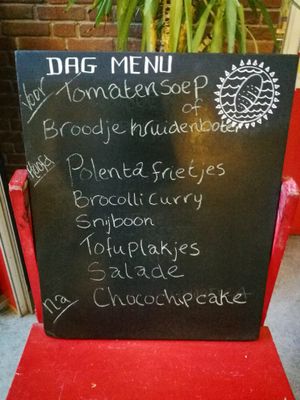 DAG MENU
Voor Tomatensoep
of
Broodje kruidenboter
Hoofd Polenta frietjes
Brocolli curry
Snijboon
Tofuplakjes
Salade
na Chocochipcake